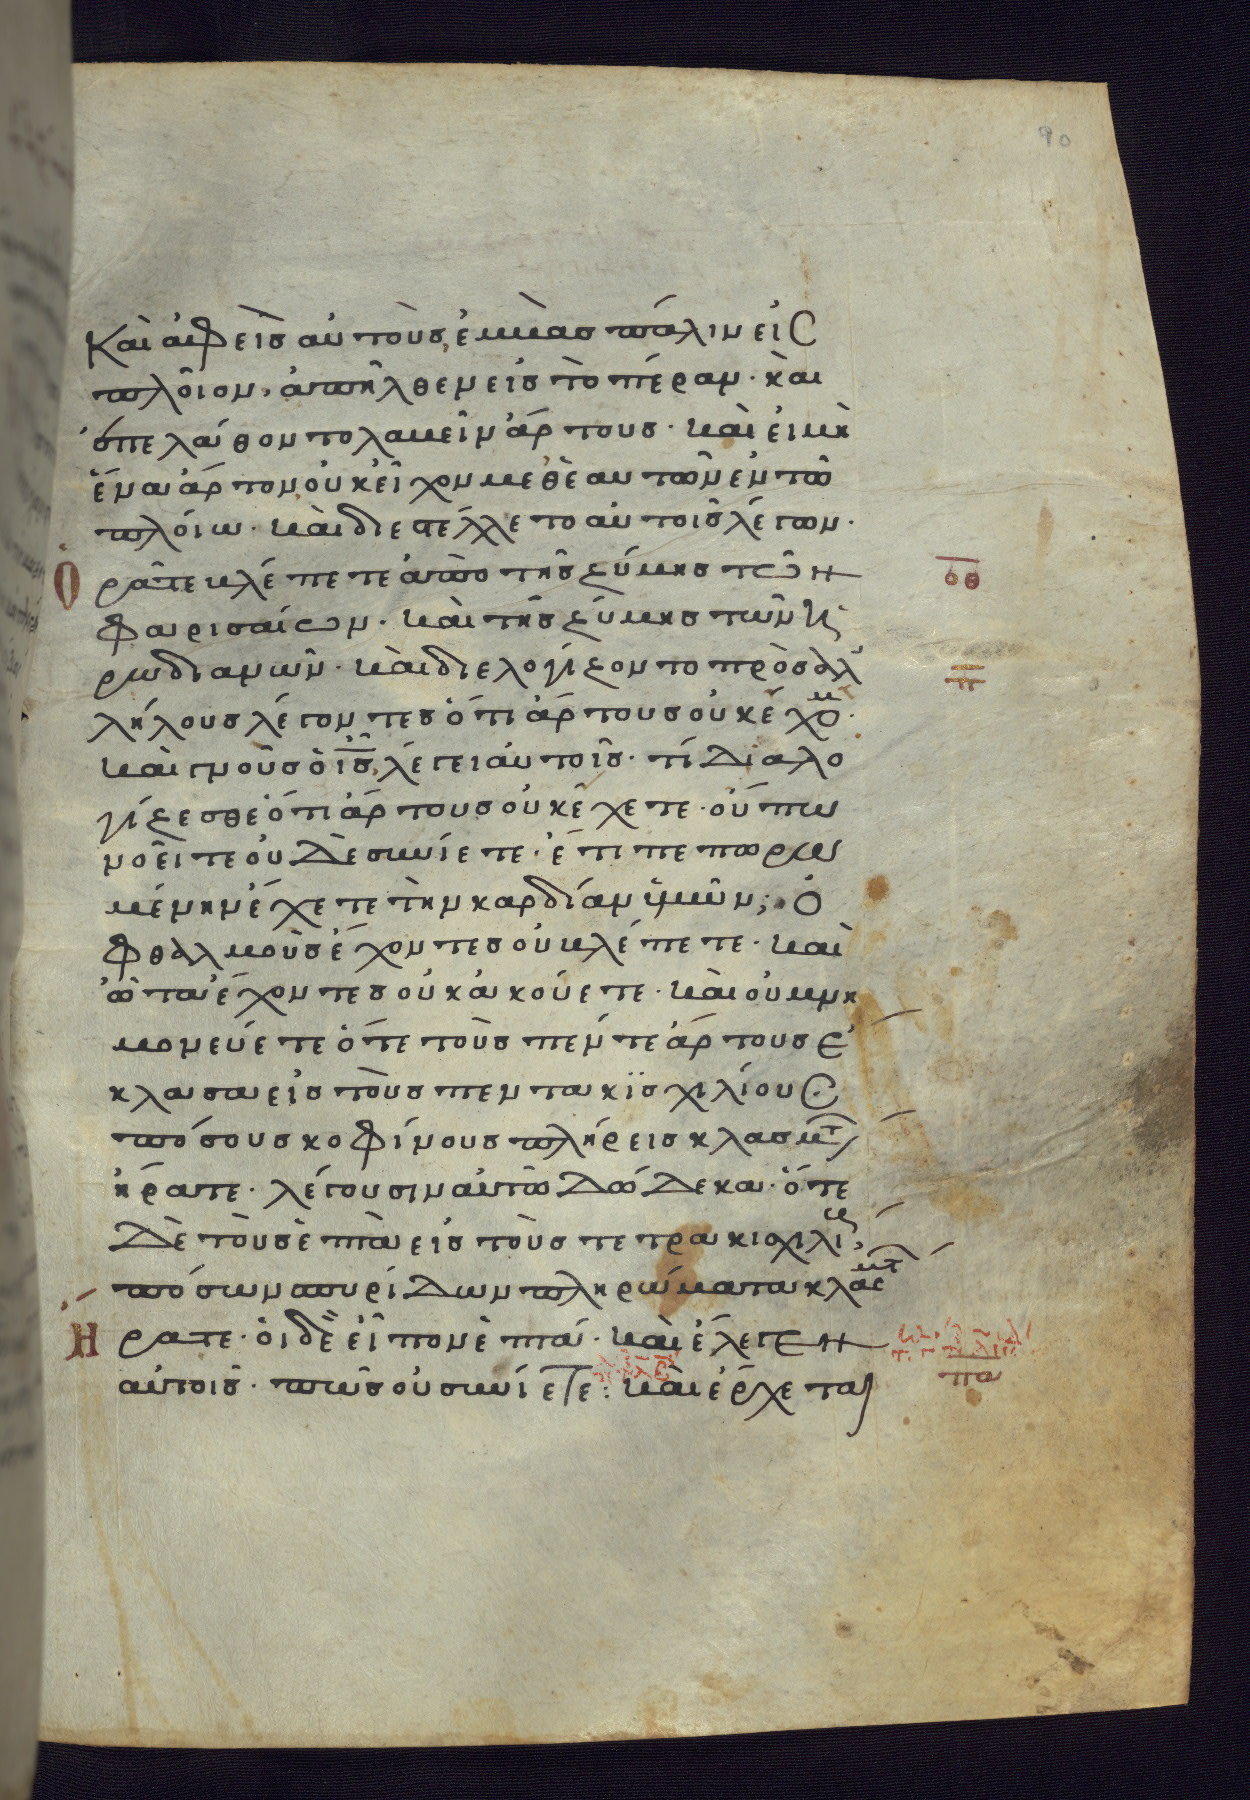 90
Καὶ ἀφεὶς αὐτοὺς, ἐμβὰς πάλιν εἰς
πλοῖον, ἀπῆλθεν εἰς τὸ πέραν· καὶ
ἐπελάθοντο λαβεῖν ἄρτους· καὶ εἰ μὴ
ἕνα ἄρτον οὐκ εἶχον μεθ ἑαυτῶν ἐν τῶ
πλοίω· καὶ διεστέλλετο αὐτοῖς λέγων·
Ὁρᾶτε βλέπετε ἀπὸ τῆς ζύμης τῶν
οθ
φαρισαίων· καὶ τῆς ζύμης τῶν Ἡ
ρωδιανῶν· καὶ διελογίζοντο πρὸς ἀλ
λήλους λέγοντες ὅτι ἄρτους οὐκ ἔχομ·
καὶ γνοὺς ὁ ις, λέγει αὐτοῖς· τί διαλο
γίζεσθε ὅτι ἄρτους οὐκ ἔχετε· οὔπω
νοεῖτε οὐδὲ συνίετε· ἔτι πεπωρω
μένην ἔχετε τὴν καρδίαν ὑμῶν; Ὀ
φθαλμοὺς ἔχοντες οὐ βλέπετε· καὶ
ὦτα ἔχοντες οὐκ ἀκούετε· καὶ οὐ μνη
μονεύετε ὅτε τοὺς πέντε ἄρτους ἔ
κλασα εἰς τοὺς πεντακϊσχιλίους
πόσους κοφίνους πλήρεις κλασμτ
ἤρατε· λέγουσιν αὐτῶ δώδεκα· ὅτε
δὲ τοὺς ἑπτὰ εἰς τοὺς τετρακισχιλί
πόσων σπυρίδων πληρώματα κλασμτ
Ἤρατε· οἱ δὲ εἶπον ἑπτά· καὶ ἔλεγεν
αὐτοῖς· πῶς οὐ συνίετε: καὶ ἔρχεται
πα